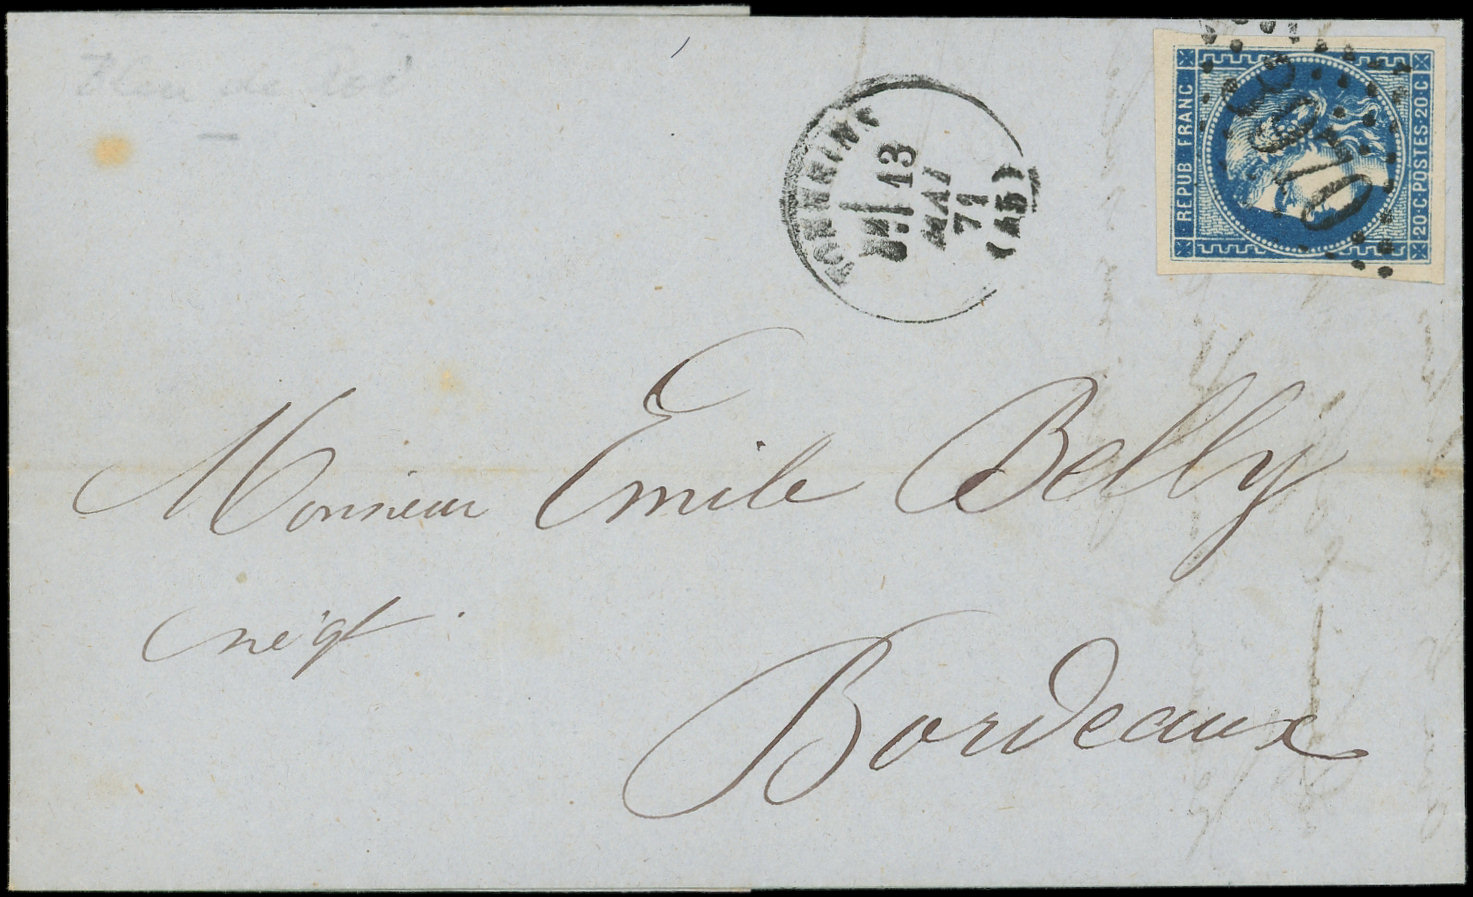 Bleu de roi
TONNEINS
13
MAI
71
(45)
REPUB·FRANC·
20·C·POSTES·20·C·
3970
Monsieur Emile Belly
négt
Bordeaux